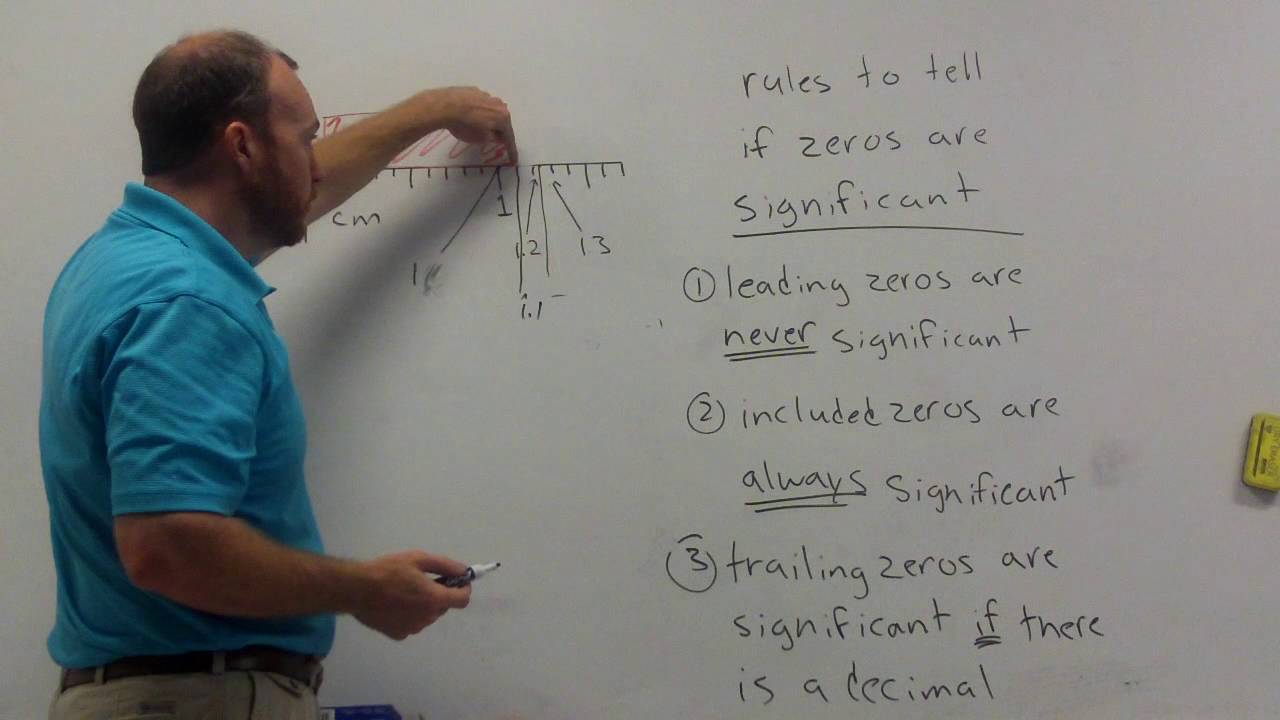 cm
1
1.2
13
1.1
rules to tell
if zeros are
significant
① leading zeros are
never significant
② included zeros are
always significant
③ trailing zeros are
significant if there
is a decimal